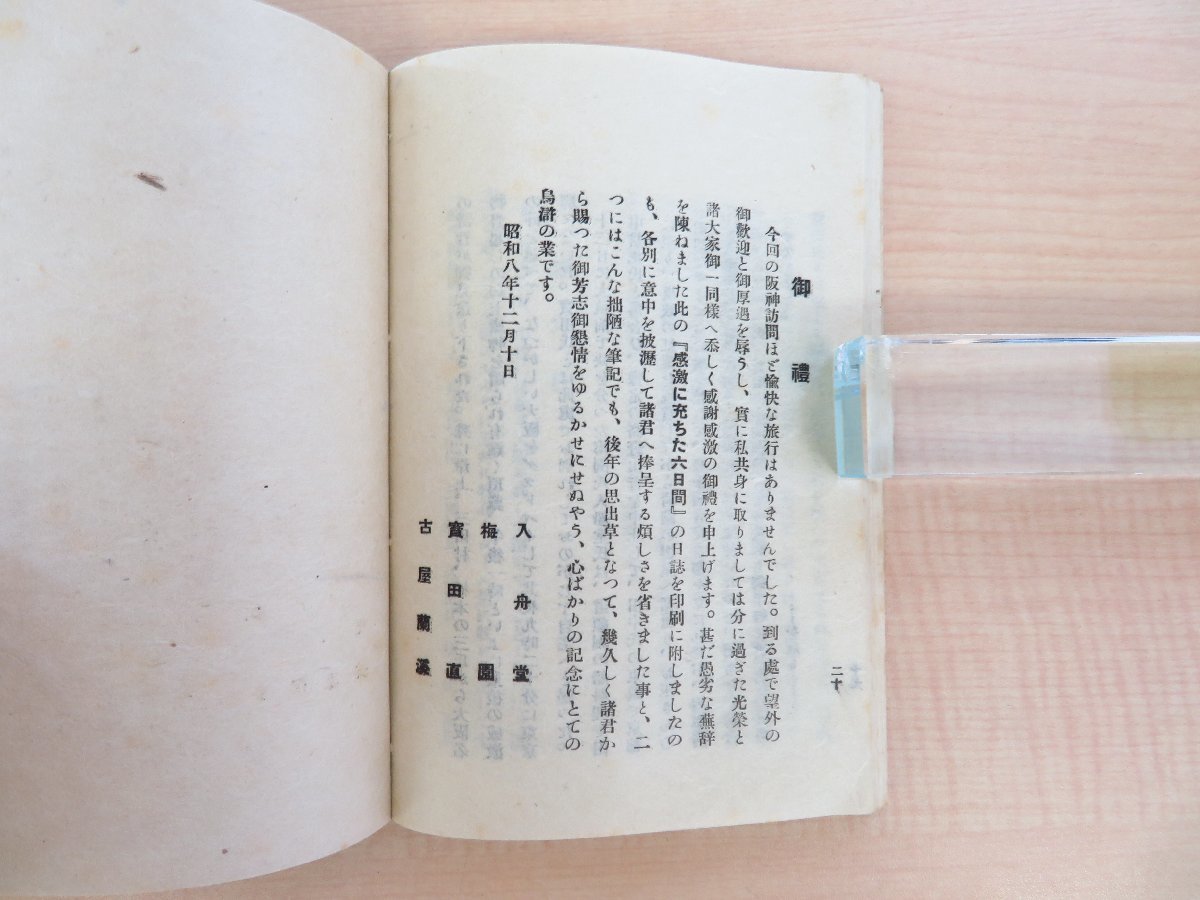 御禮
今回の阪神訪問ほど愉快な旅行はありませんでした。到る處で望外の
御歡迎と御厚遇を辱うし、實に私共身に取りましては分に過ぎた光榮と
諸大家御一同樣へ忝しく感謝感激の御禮を申上げます。甚だ愚劣な蕪辞
を陳ねました此の『感激に充ちた六日間』の日誌を印刷に附しましたの
も、各別に意中を披瀝して諸君へ捧呈する煩しさを省きました事と、二
つにはこんな拙陋な筆記でも、後年の思出草となつて、幾久しく諸君か
ら賜つた御芳志御懇情をゆるかせにせぬやう、心ばかりの記念にとての
烏滸の業です。
昭和八年十二月十日
入舟堂
梅園
寳田直
古屋蘭溪
二十